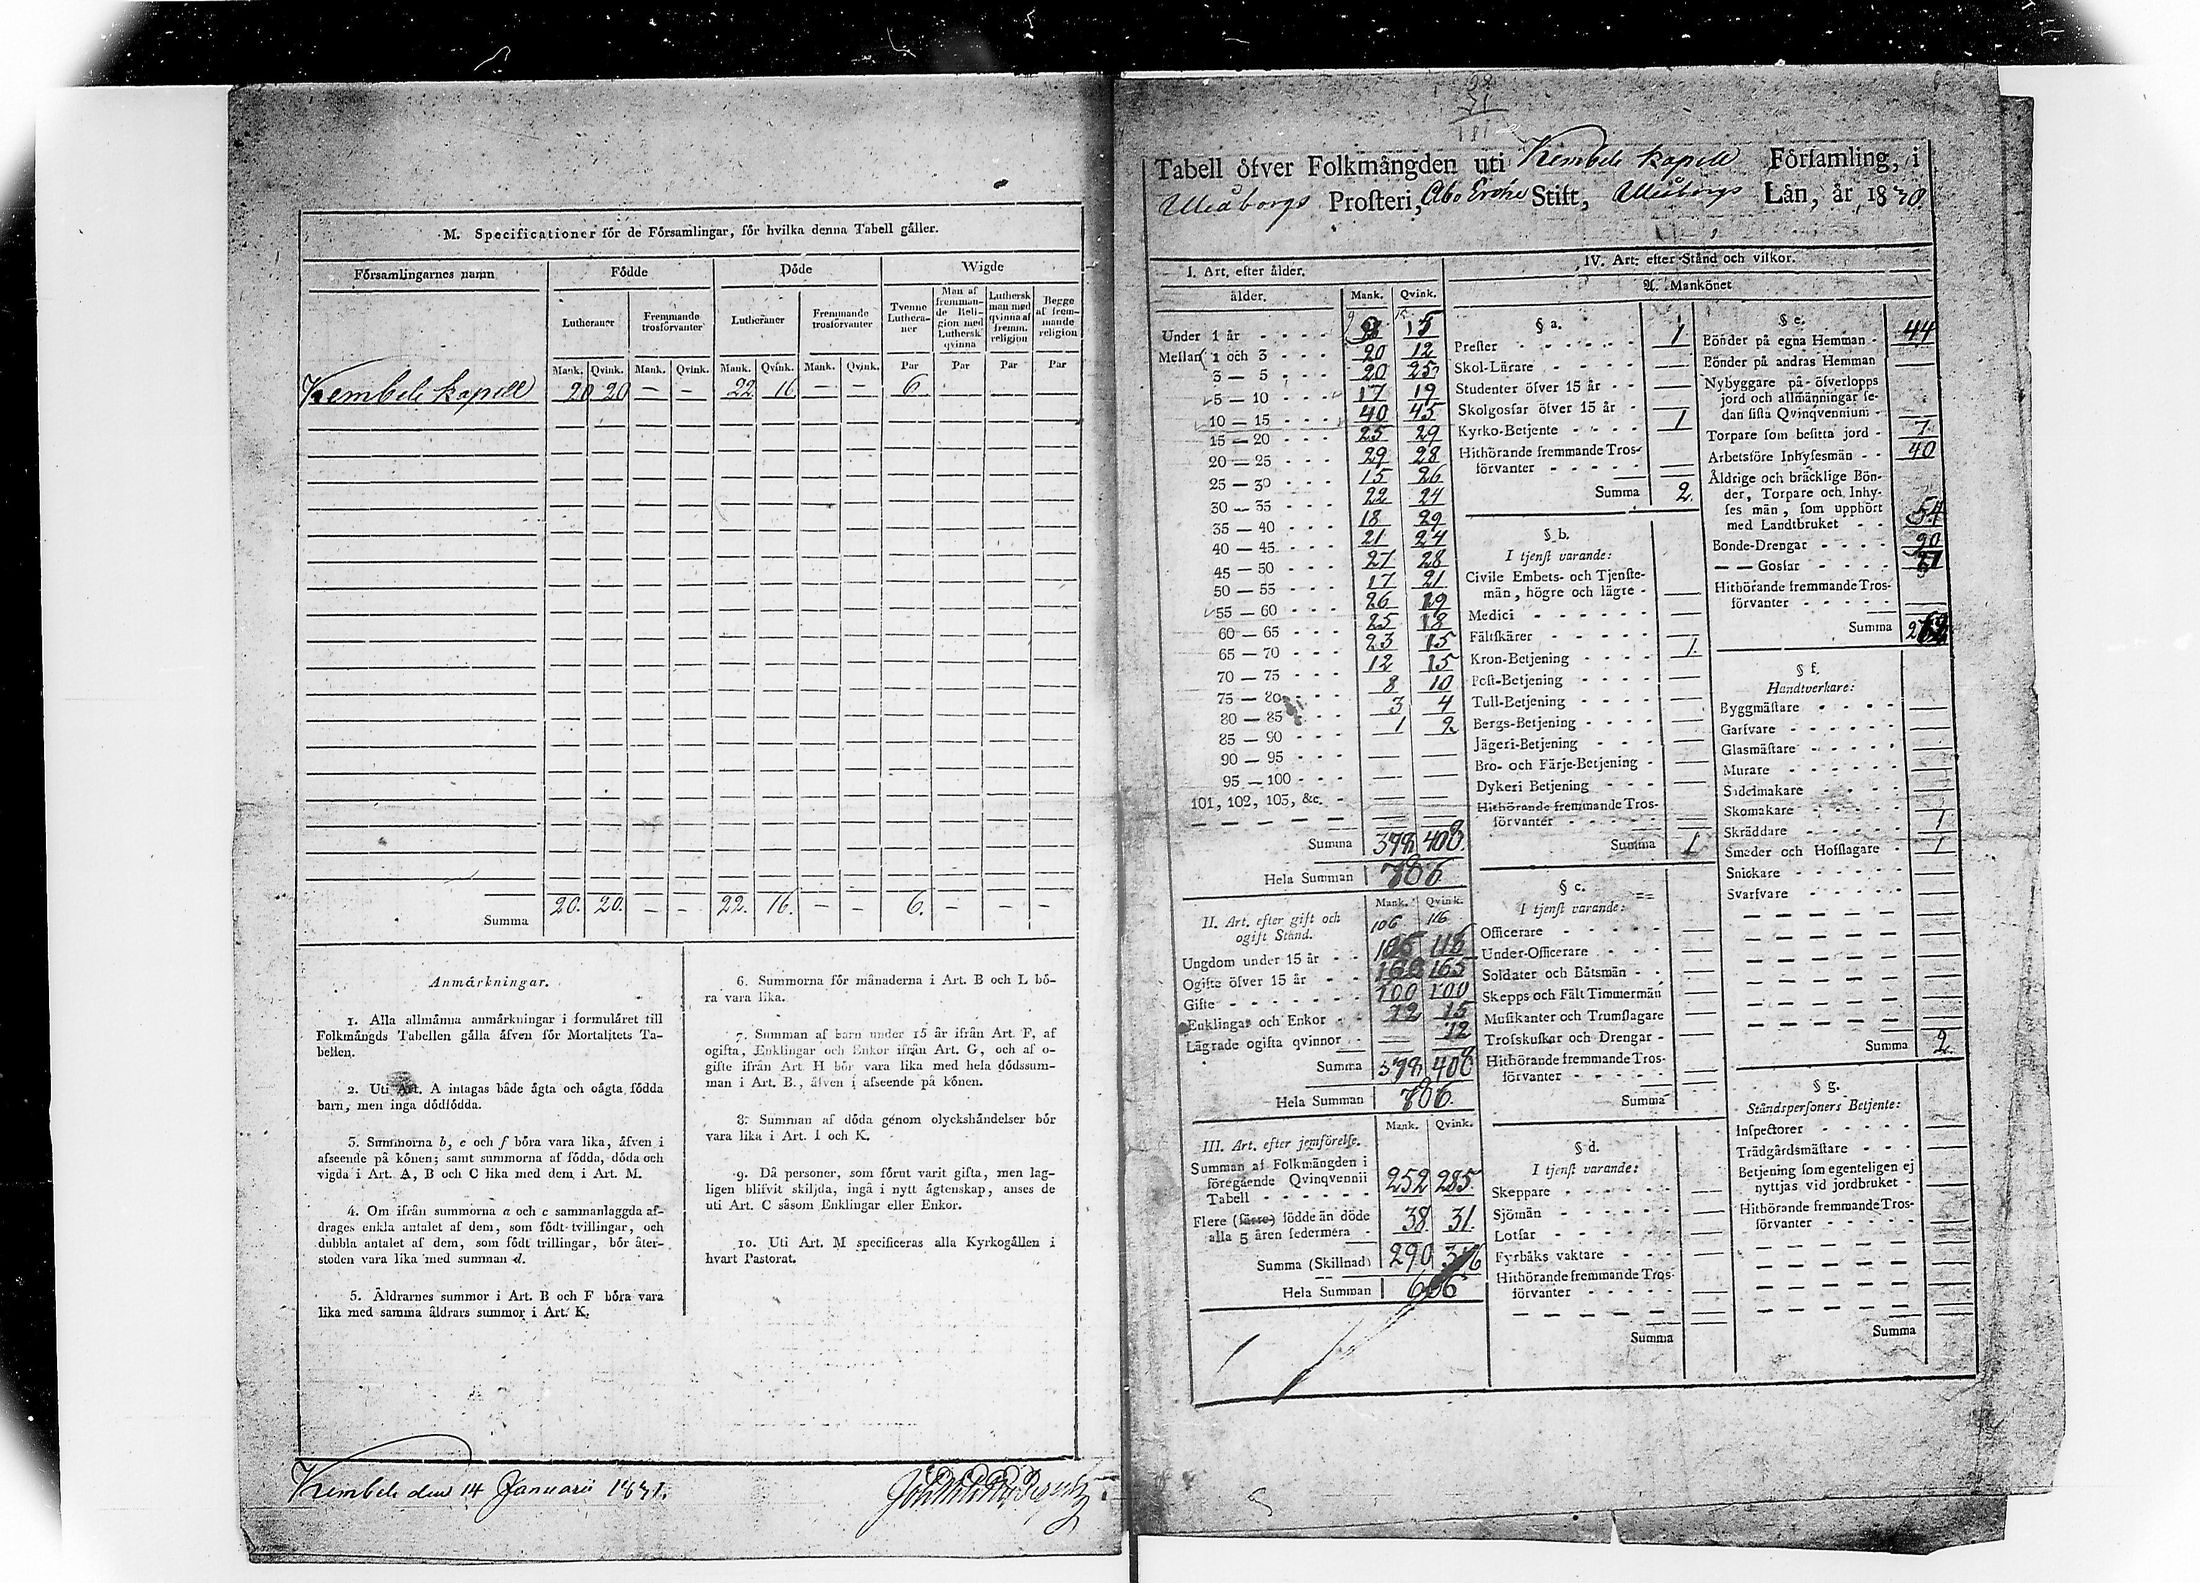 M. Specificationer för de Församlingar, för hvilka denna Tabell gäller.
Församlingarnes namn Födde Döde Wigde
Lutheraner Fremmande trosförvanter Lutheraner Fremmande trosförvanter Tvenne Lutheraner Man af fremmande Religion med Luthersk qvinna Luthersk man med qvinna af fremm. religion Begge af fremmande religion
Mank. Qvink. Mank. Qvink. Mank. Qvink. Mank. Qvink. Par Par Par Par
Kembele kapell 20 20 — — 22 16 — — 6 — — —
Summa 20. 20. — — 22. 16. — — 6. — — —
Anmärkningar.
1. Alla allmänna anmärkningar i formuläret till
Folkmängds Tabellen gälla äfven för Mortalitets Ta-
bellen.
2. Uti Art. A intagas både ägta och oägta födda
barn, men inga dödfödda.
3. Summorna b, e och f böra vara lika, äfven i
afseende på könen; samt summorna af födda, döda och
vigda i Art. A, B och C lika med dem i Art. M.
4. Om ifrån summorna a och c sammanlaggda af-
drages enkla antalet af dem, som födt tvillingar, och
dubbla antalet af dem, som födt trillingar, bör åter-
stoden vara lika med summan d.
5. Åldrarnes summor i Art. B och F böra vara
lika med samma åldrars summor i Art. K.
6. Summorna för månaderna i Art. B och L bö-
ra vara lika.
7. Summan af barn under 15 år ifrån Art. F, af
ogifta, Enklingar och Enkor ifrån Art. G, och af o-
gifte ifrån Art. H bör vara lika med hela dödssum-
man i Art. B., äfven i afseende på könen.
8. Summan af döda genom olyckshändelser bör
vara lika i Art. I och K.
9. Då personer, som förut varit gifta, men lag-
ligen blifvit skiljda, ingå i nytt ägtenskap, anses de
uti Art. C såsom Enklingar eller Enkor.
10. Uti Art. M specificeras alla Kyrkogällen i
hvart Pastorat.
Kembele den 14 Januarii 1831.
Tabell öfver Folkmängden uti Kembele kapell Församling, i
Uleåborgs Prosteri, Åbo Erche Stift, Uleåborgs Län, år 1830.
I. Art. efter ålder.
ålder. Mank. Qvink.
Under 1 år 15
Mellan 1 och 3 20 12
3 — 5 20 25
5 — 10 17 19
10 — 15 40 45
15 — 20 25 29
20 — 25 29 28
25 — 30 15 26
30 — 35 22 24
35 — 40 18 29
40 — 45 21 24
45 — 50 27 28
50 — 55 17 21
55 — 60 26 19
60 — 65 25 18
65 — 70 23 15
70 — 75 12 15
75 — 80 8 10
80 — 85 3 4
85 — 90 1 2
90 — 95 — —
95 — 100 — —
101, 102, 103, &c. — —
Summa 378 408.
Hela Summan 786
II. Art. efter gift och
ogift Stånd.
Mank. Qvink.
106 116
Ungdom under 15 år 106 116
Ogifte öfver 15 år 160 165
Gifte 100 100
Enklingar och Enkor 12 15
Lägrade ogifta qvinnor — 12
Summa 378 408
Hela Summan 786.
III. Art. efter jemförelse.
Mank. Qvink.
Summan af Folkmängden i
föregående Qvinqvennii
Tabell 252 285.
Flere (färre) födde än döde
alla 5 åren sedermera 38. 31.
Summa (Skillnad) 290 316
Hela Summan 606
IV. Art. efter Stånd och vilkor.
A. Mankönet
§ a.
Prester 1
Skol-Lärare —
Studenter öfver 15 år —
Skolgossar öfver 15 år —
Kyrko-Betjente 1
Hithörande fremmande Tros-
förvanter —
Summa 2.
§ b.
I tjenst varande:
Civile Embets- och Tjenste-
män, högre och lägre —
Medici —
Fältskärer —
Kron-Betjening 1.
Post-Betjening —
Tull-Betjening —
Bergs-Betjening —
Jägeri-Betjening —
Bro- och Färje-Betjening —
Dykeri Betjening —
Hithörande fremmande Tros-
förvanter —
Summa 1
§ c.
I tjenst varande:
Officerare —
Under-Officerare —
Soldater och Båtsmän —
Skepps och Fält Timmermän —
Musikanter och Trumslagare —
Trosskuskar och Drengar —
Hithörande fremmande Tros-
förvanter —
Summa
§ d.
I tjenst varande:
Skeppare —
Sjömän —
Lotsar —
Fyrbåks vaktare —
Hithörande fremmande Tros-
förvanter —
Summa
§ e.
Bönder på egna Hemman 44
Bönder på andras Hemman —
Nybyggare på öfverlopps
jord och allmänningar se-
dan sista Qvinqvennium —
Torpare som besitta jord 7.
Arbetsföre Inhysesmän 40
Åldrige och bräcklige Bön-
der, Torpare och Inhy-
ses män, som upphört
med Landtbruket 54
Bonde-Drengar 20
— — Gossar
Hithörande fremmande Tros-
förvanter —
Summa
§ f.
Handtverkare:
Byggmästare —
Garfvare —
Glasmästare —
Murare —
Sadelmakare —
Skomakare —
Skräddare 1
Smeder och Hofslagare 1
Snickare —
Svarfvare —
Summa 2
§ g.
Ståndspersoners Betjente:
Inspectorer —
Trädgårdsmästare —
Betjening som egenteligen ej
nyttjas vid jordbruket —
Hithörande fremmande Tros-
förvanter —
Summa